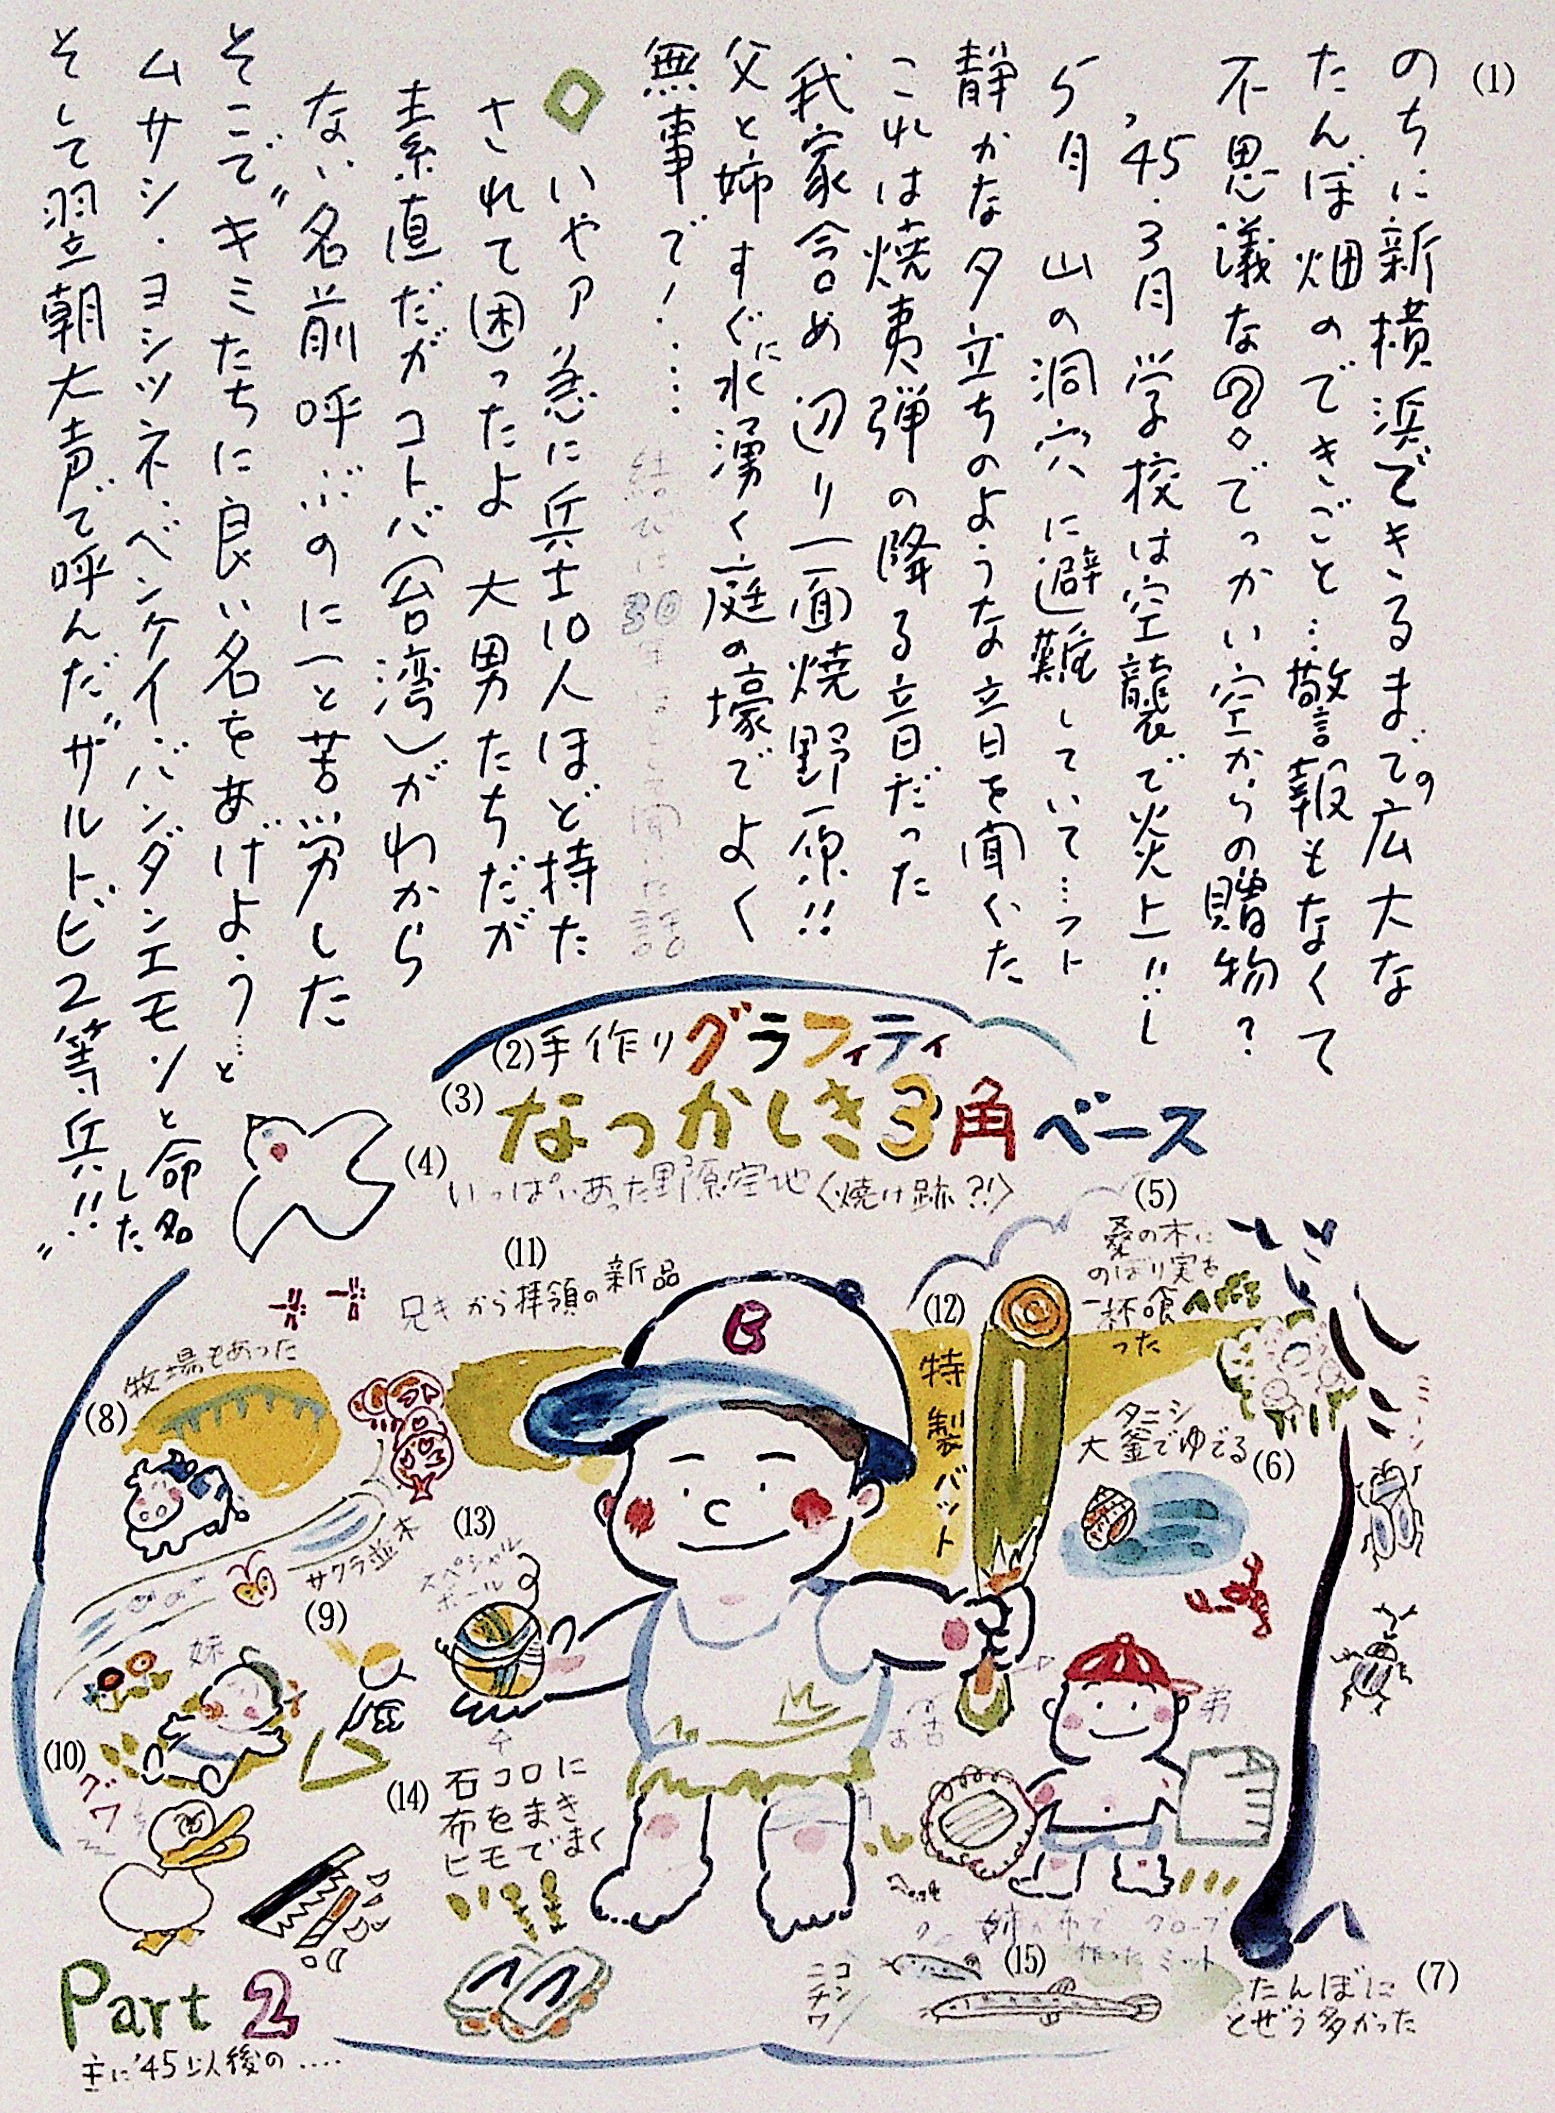 (1)
のちに新横浜できるまでの広大な
たんぼ畑のできごと…警報もなくて
不思議な?。でっかい空からの贈物?
'45.3月 学校は空襲で炎上!!…し
5月 山の洞穴に避難していて…フト
静かな夕立ちのような音を聞いた
これは焼夷弾の降る音だった
我家含め辺り一面焼野原!!
父と姉すぐに水湧く庭の壕でよく
無事で!……
結びに30年ほどして聞いた話
◇いやァ急に兵士10人ほど持た
されて困ったよ 大男たちだが
素直だがコトバ(台湾)がわから
ない名前呼ぶのに一と苦労した
そこで〝キミたちに良い名をあげよう…と
ムサシ・ヨシツネ・ベンケイ・バンダンエモンと命名した
そして翌朝大声で呼んだ〝サルトビ2等兵!!〟
(2)手作りグラフィティ
(3)なつかしき3角ベース
(4)いっぱいあった野原空地〈焼け跡?!〉
(5)
桑の木に
のぼり実を
一杯喰
った
(11)
兄きから拝領の新品
B
(12)
特製バット
(8)牧場もあった
タニシ
大釜でゆでる(6)
ミーン
サクラ並木
(9)
(13)
スペシャル
ボール
妹
弟
(10)
グワ
(14)
石コロに
布をまき
ヒモでまく
姉の布でグローブ
作ったミット
(15)
コンニチワ
たんぼに
どぜう多かった
(7)
Part 2
主に'45以後の....